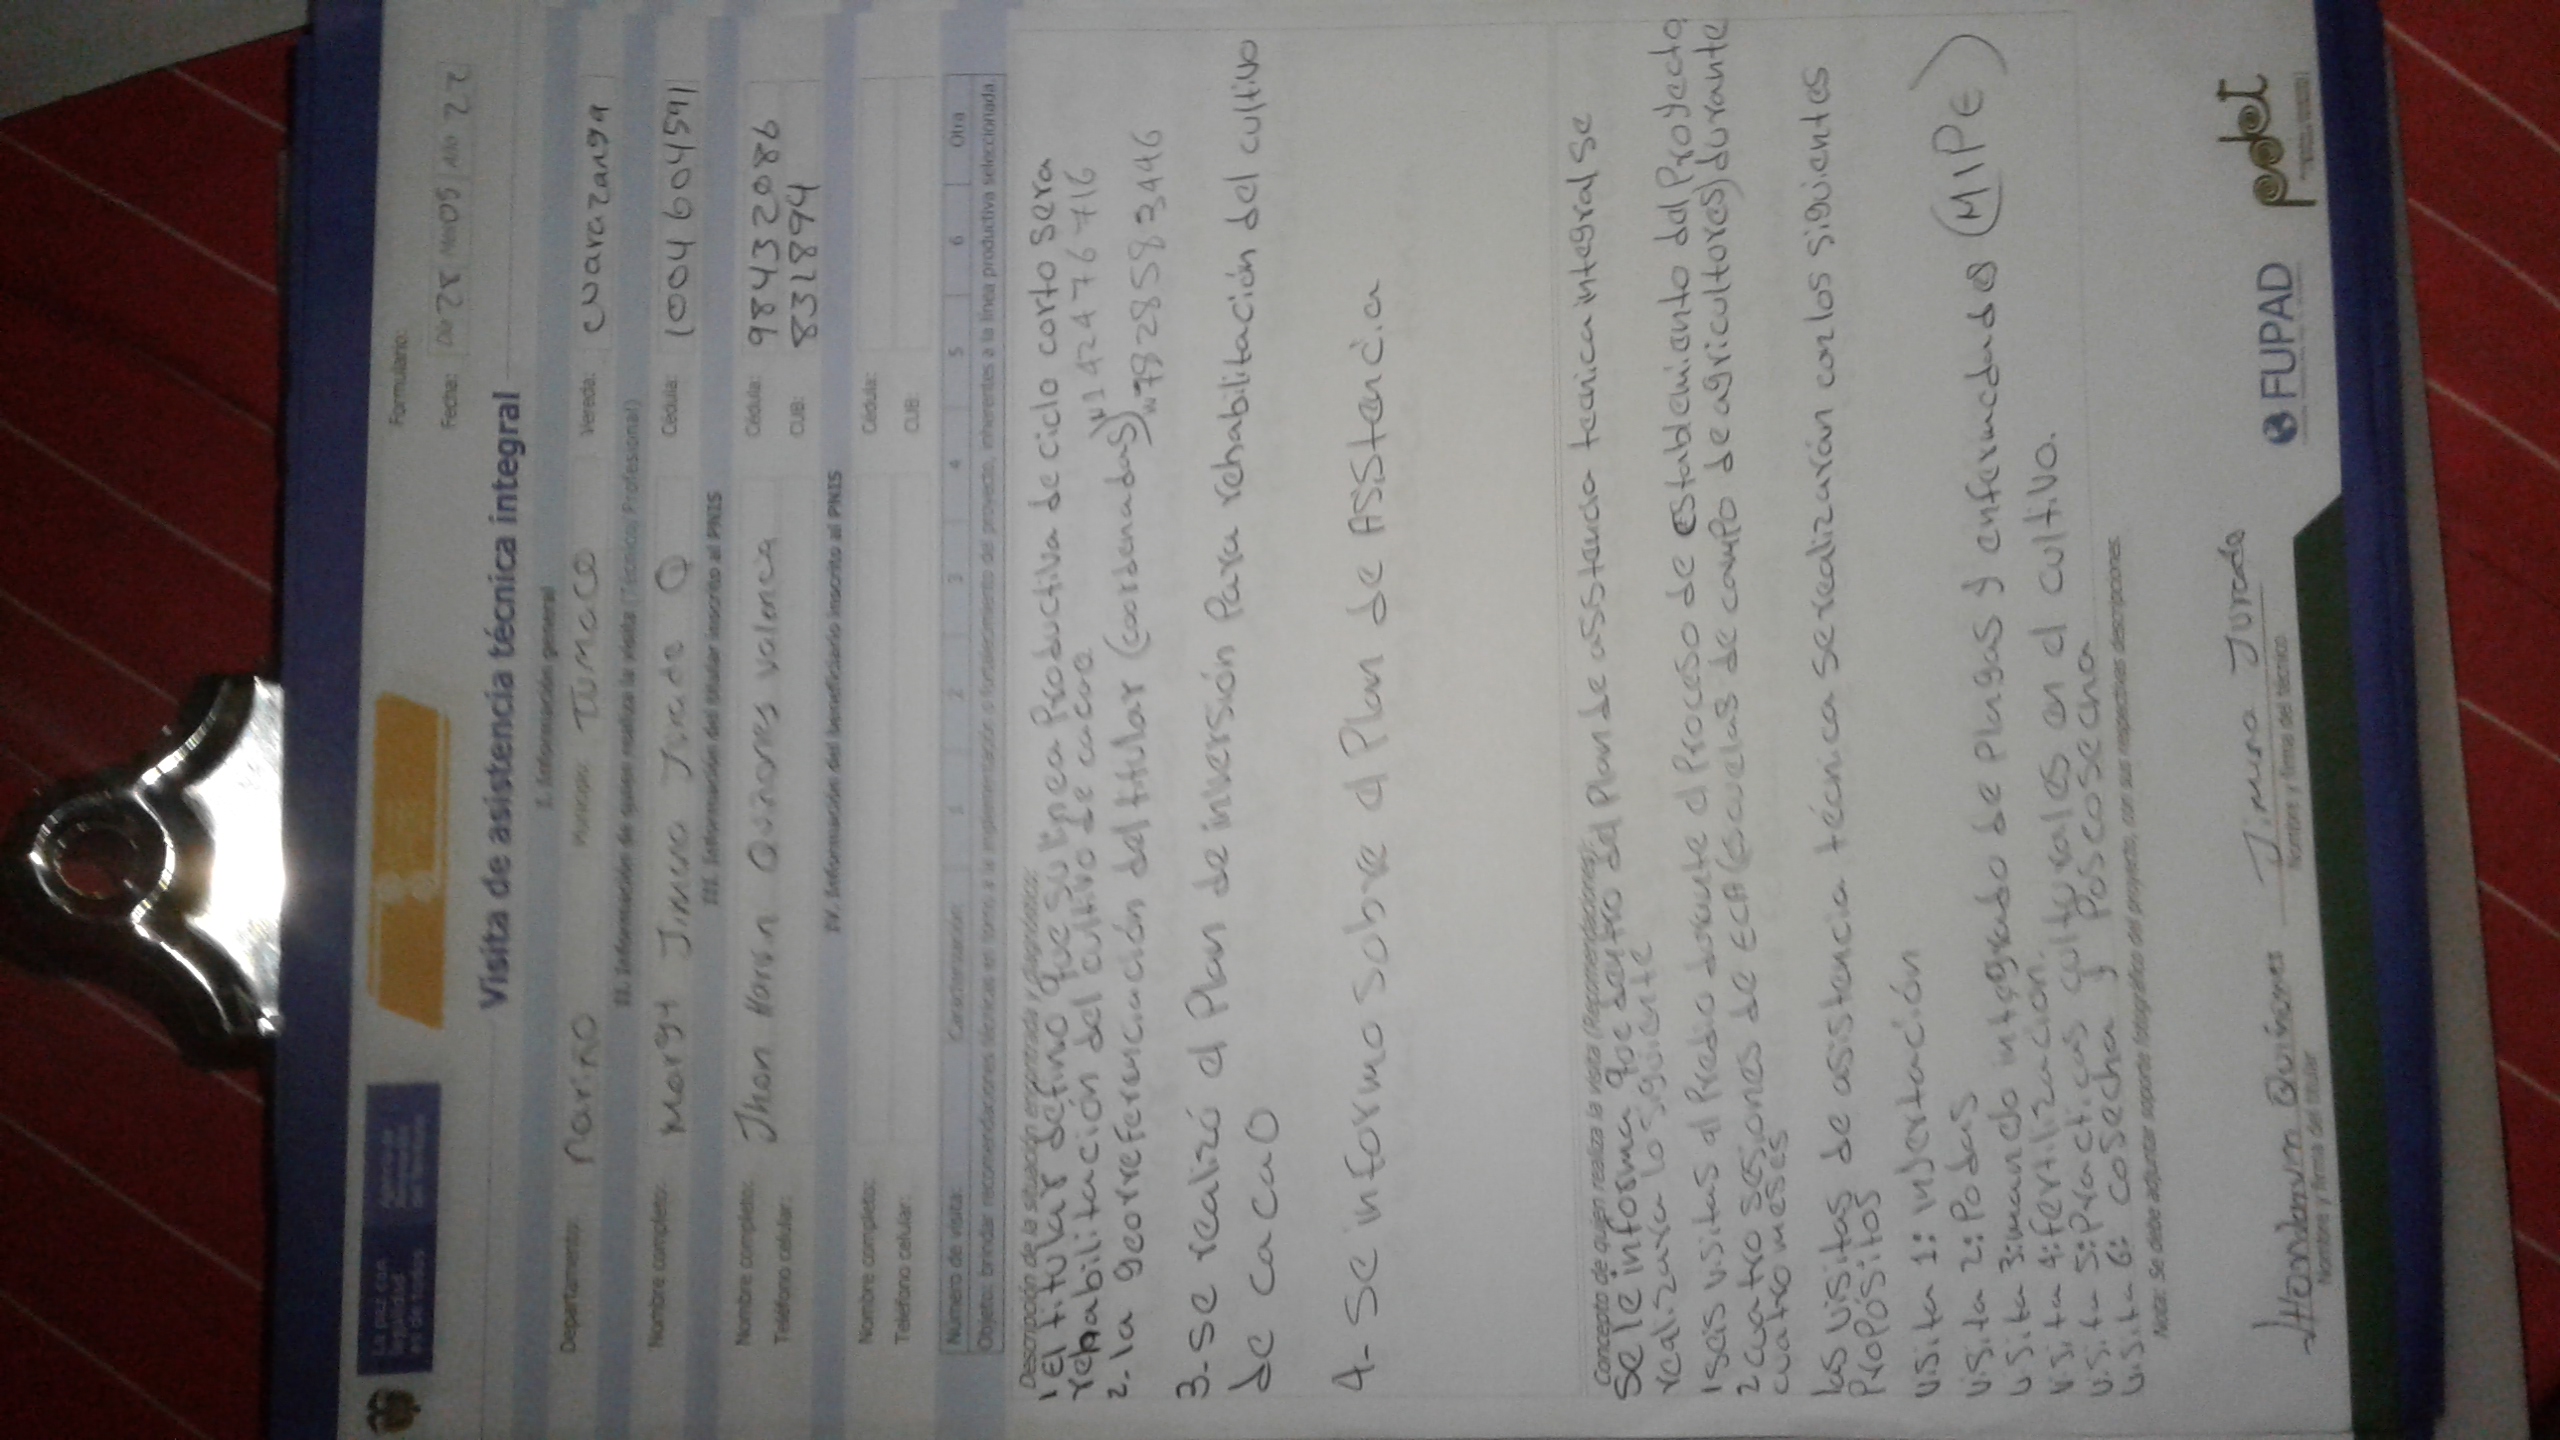 La paz con
legalidad
es de todos
Agencia de
Renovación
del Territorio
Formulario:
Fecha: Día 28 Mes 05 Año 22
Visita de asistencia técnica integral
I. Información general
Departamento: Nariño Municipio: TUMaco Vereda: cuarazanga
II. Información de quien realiza la visita (Técnico/Profesional)
Nombre completo: Margt Jimena Jurado Q Cédula: 1004604591
III. Información del titular inscrito al PNIS
Nombre completo: Jhon Quiñones valencia Cédula: 98432086
Teléfono celular: CUB: 8328894
IV. Información del beneficiario inscrito al PNIS
Nombre completo: Cédula:
Teléfono celular: CUB:
Número de visita: Caracterización: 1 2 3 4 5 6 Otra
Objeto: brindar recomendaciones técnicas en torno a la implementación o fortalecimiento del proyecto, inherentes a la línea productiva seleccionada.
Descripción de la situación encontrada y diagnóstico:
1 El titular definio que su linea Productiva de ciclo corto sera
rehabilitación del cultivo de cacao
2. la georreferenciación del titular (coordenadas) N1 42476716
W7828583446
3. se realizó el Plan de inversión Para rehabilitación del cultivo
de cacaO
4- Se informo sobre el Plan de Asistencia
Concepto de quien realiza la visita (Recomendaciones):
Se le informa que dentro del Plan de assistencia tecnica integral se
realizara lo siguiente
1 seis visitas al Predio durante el Proceso de establecimiento del Proyecto
2 cuatro sesiones de ECA (escuelas de campo de agricultores) durante
cuatro meses
las visitas de asistencia técnica se realizarán con los siguientes
Propósitos
visita 1: injertación
visita 2: Podas
visita 3: manejo integrado de Plagas y enfermedades (MIPE)
visita 4: fertilización.
visita 5: Practicas culturales en el cultivo.
visita 6: cosecha y Poscosecha
Nota: Se debe adjuntar soporte fotográfico del proyecto, con sus respectivas descripciones.
Quiñones Jimena Jurado
Nombre y firma del titular Nombre y firma del técnico
FUPAD
pdet